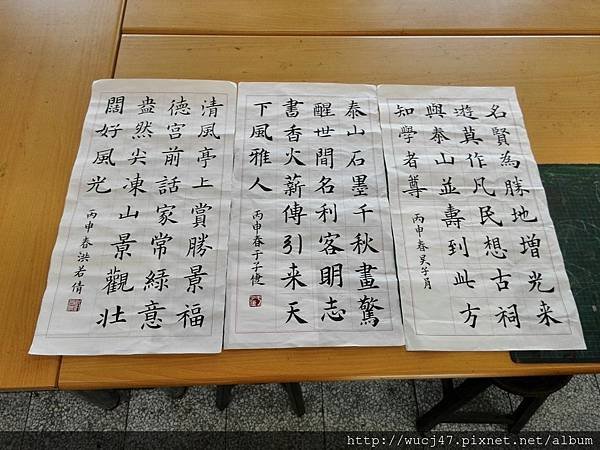 名賢為勝地增光来
遊莫作凡民想古祠
與泰山並壽到此方
知學者尊
丙申春吴子月
泰山石墨千秋畫驚
醒世間名利客明志
書香火薪傳引来天
下風雅人
丙申春于子健
清風亭上賞勝景福
德宮前話家常綠意
盎然尖凍山景觀壯
闊好風光
丙申春洪若倩
http://wucj47.pixnet.net/album